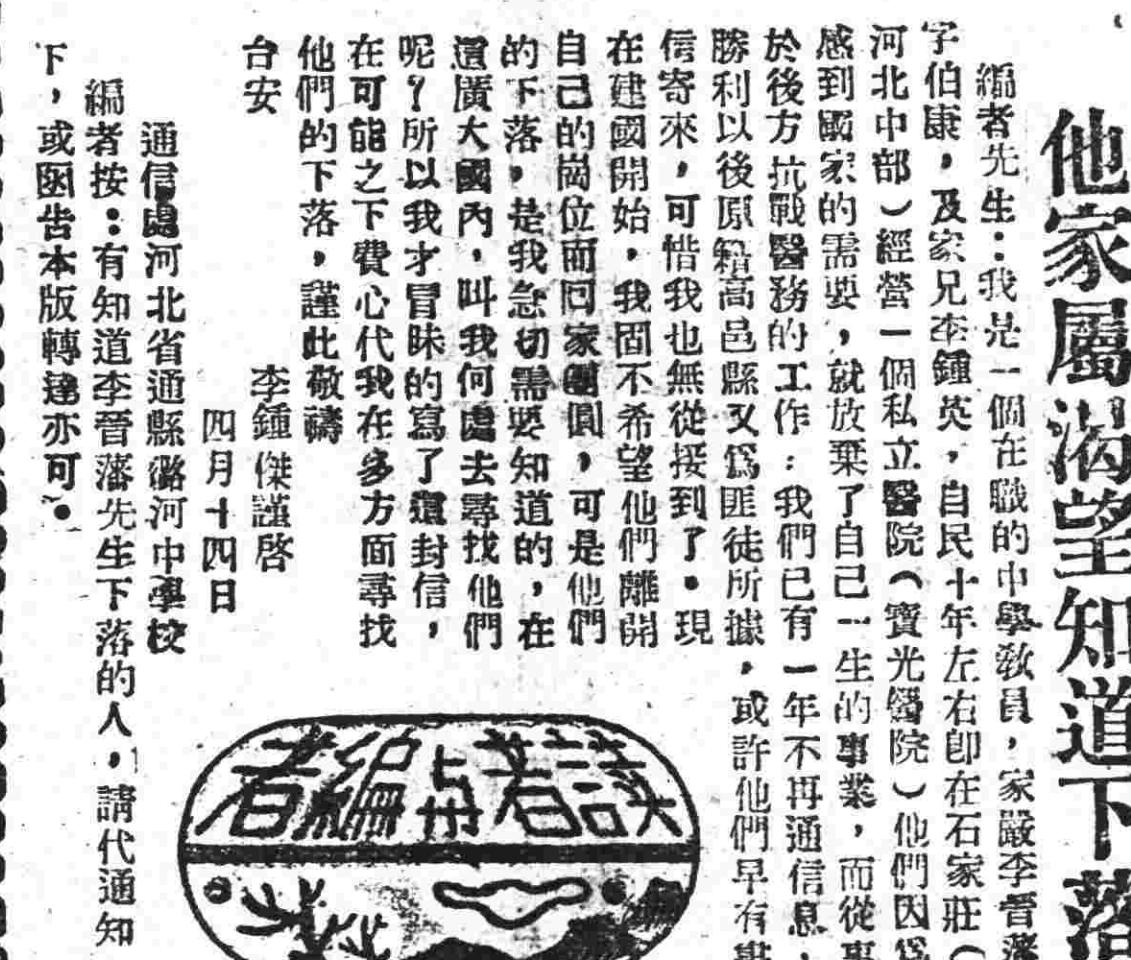 他家屬渴望知道下落
編者先生：我是一個在職的中學教員，家嚴李晉藩
字伯康，及家兄李鍾英，自民十年左右卽在石家莊（
河北中部）經營一個私立醫院（寶光醫院）他們因爲
感到國家的需要，就放棄了自己一生的事業，而從事
於後方抗戰醫務的工作：我們已有一年不再通信息，
勝利以後原籍高邑縣又爲匪徒所據，或許他們早有
信寄來，可惜我也無從接到了。現
在建國開始，我固不希望他們離開
自己的崗位而回家團圓，可是他們
的下落，是我急切需要知道的，在
這廣大國內，叫我何處去尋找他們
呢？所以我才冒昧的寫了這封信，
在可能之下費心代我在多方面尋找
他們的下落，謹此敬禱
台安
李鍾傑謹啓
四月十四日
通信處河北省通縣潞河中學校
編者按：有知道李晉藩先生下落的人，請代通知
下，或函告本版轉達亦可。
讀者與編者